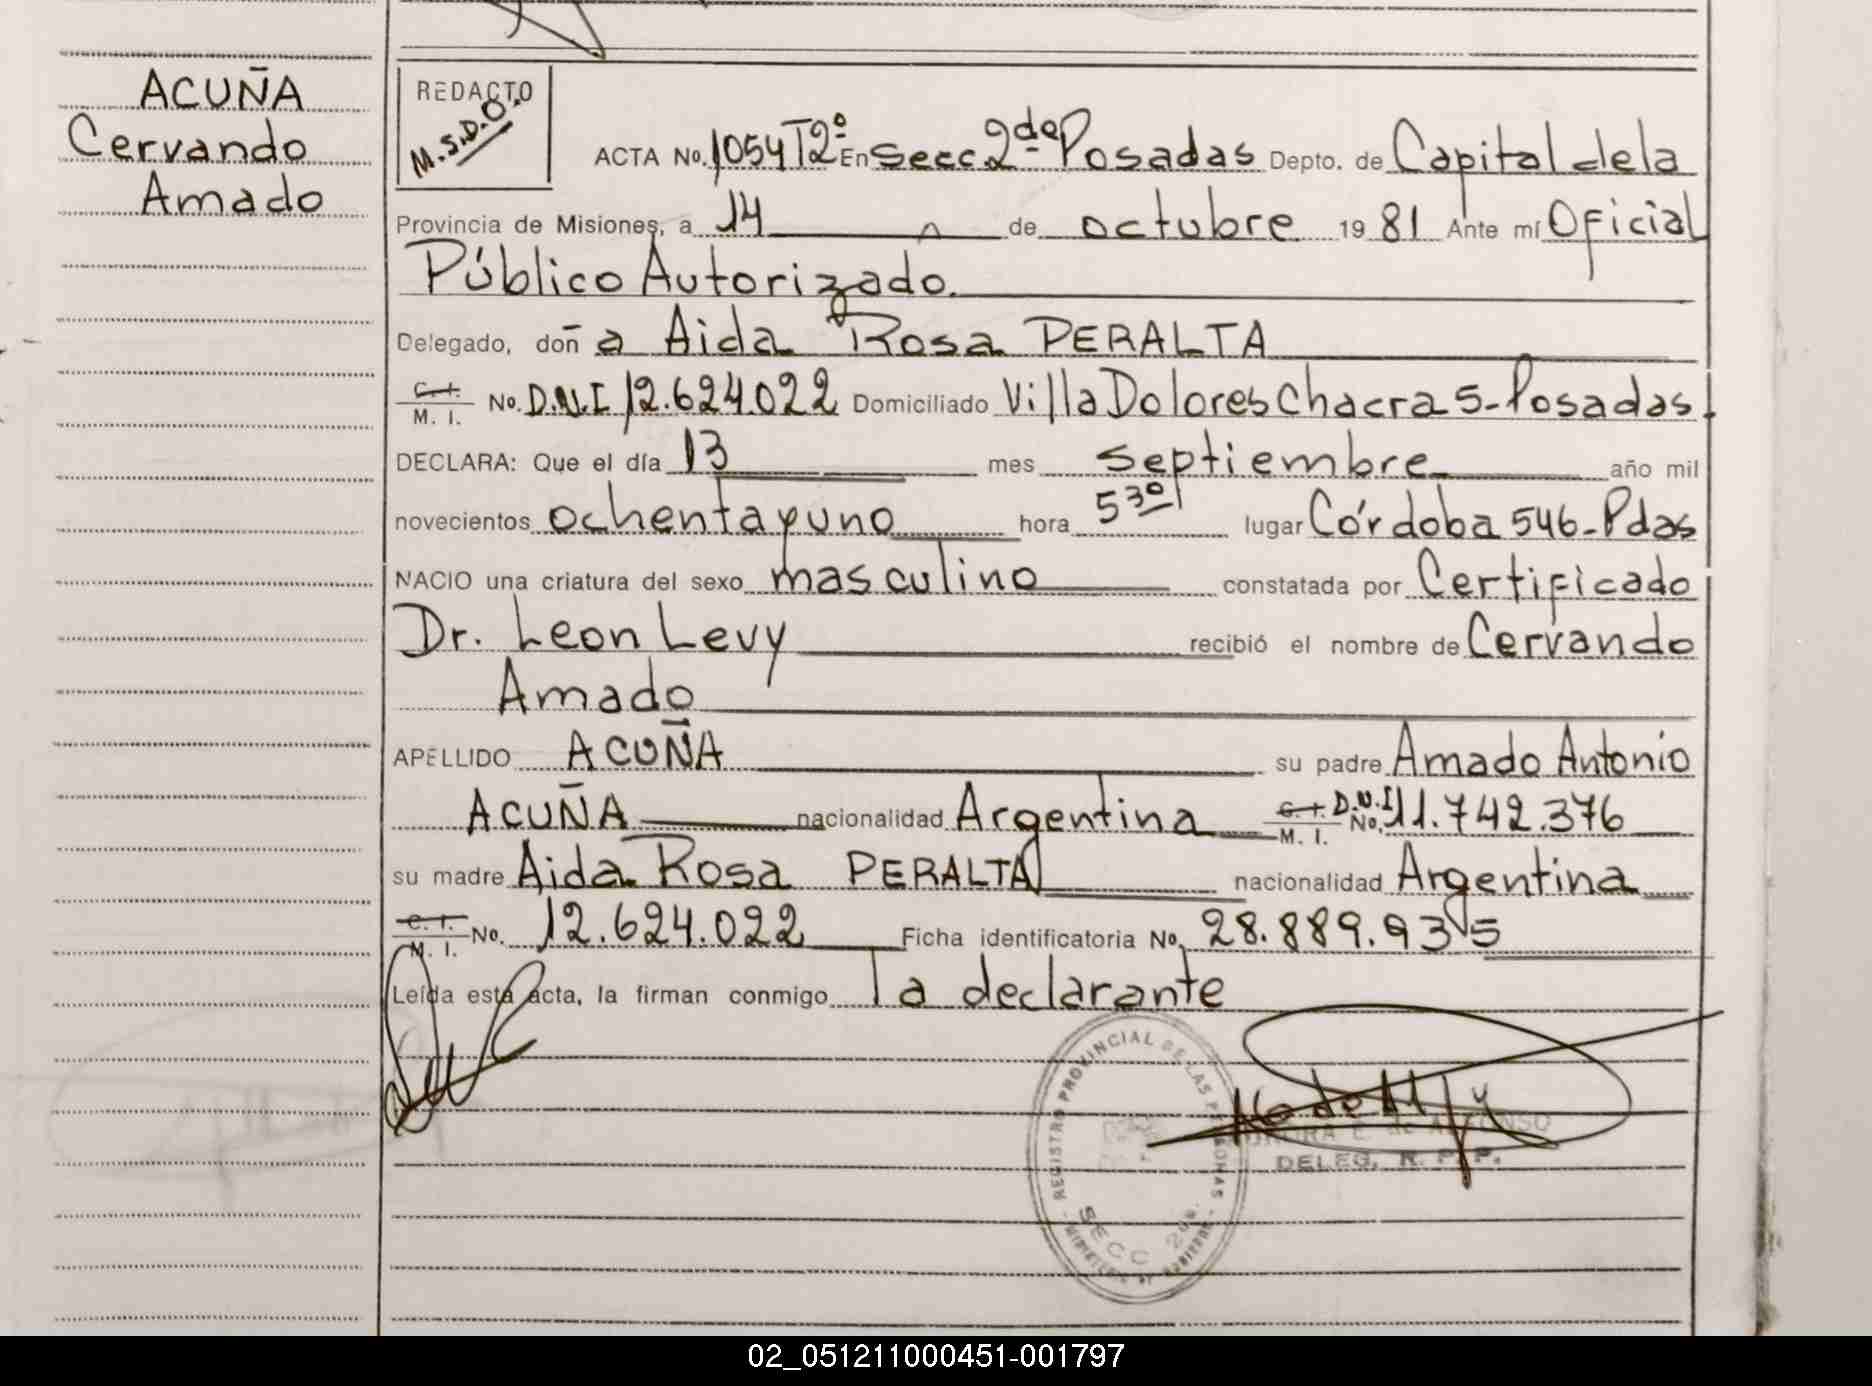 ACUÑA
Cervando
Amado
REDACTO
M.S.D.O.
ACTA No. 1054 T2º En Secc. 2da Posadas Depto. de Capital de la
Provincia de Misiones, a 14 de octubre 19 81 Ante mí Oficial
Público Autorizado.
Delegado, doña Aida Rosa PERALTA
C. I. M. I. No. D.N.I 12.624.022 Domiciliado Villa Dolores Chacra 5-Posadas.
DECLARA: Que el día 13 mes septiembre año mil
novecientos ochenta y uno hora 5 30 lugar Córdoba 546-Pdas
NACIO una criatura del sexo masculino constatada por Certificado
Dr. Leon Levy recibió el nombre de Cervando
Amado
APELLIDO ACUÑA su padre Amado Antonio
ACUÑA nacionalidad Argentina C. I. M. I. D.N.I No. 11.742.376
su madre Aida Rosa PERALTA nacionalidad Argentina
C. I. M. I. No. 12.624.022 Ficha identificatoria No. 28.889.935
Leída esta acta, la firman conmigo la declarante
REGISTRO PROVINCIAL DE LAS PERSONAS
SECC 2da.
DELEG. R. P. P.
02_051211000451-001797